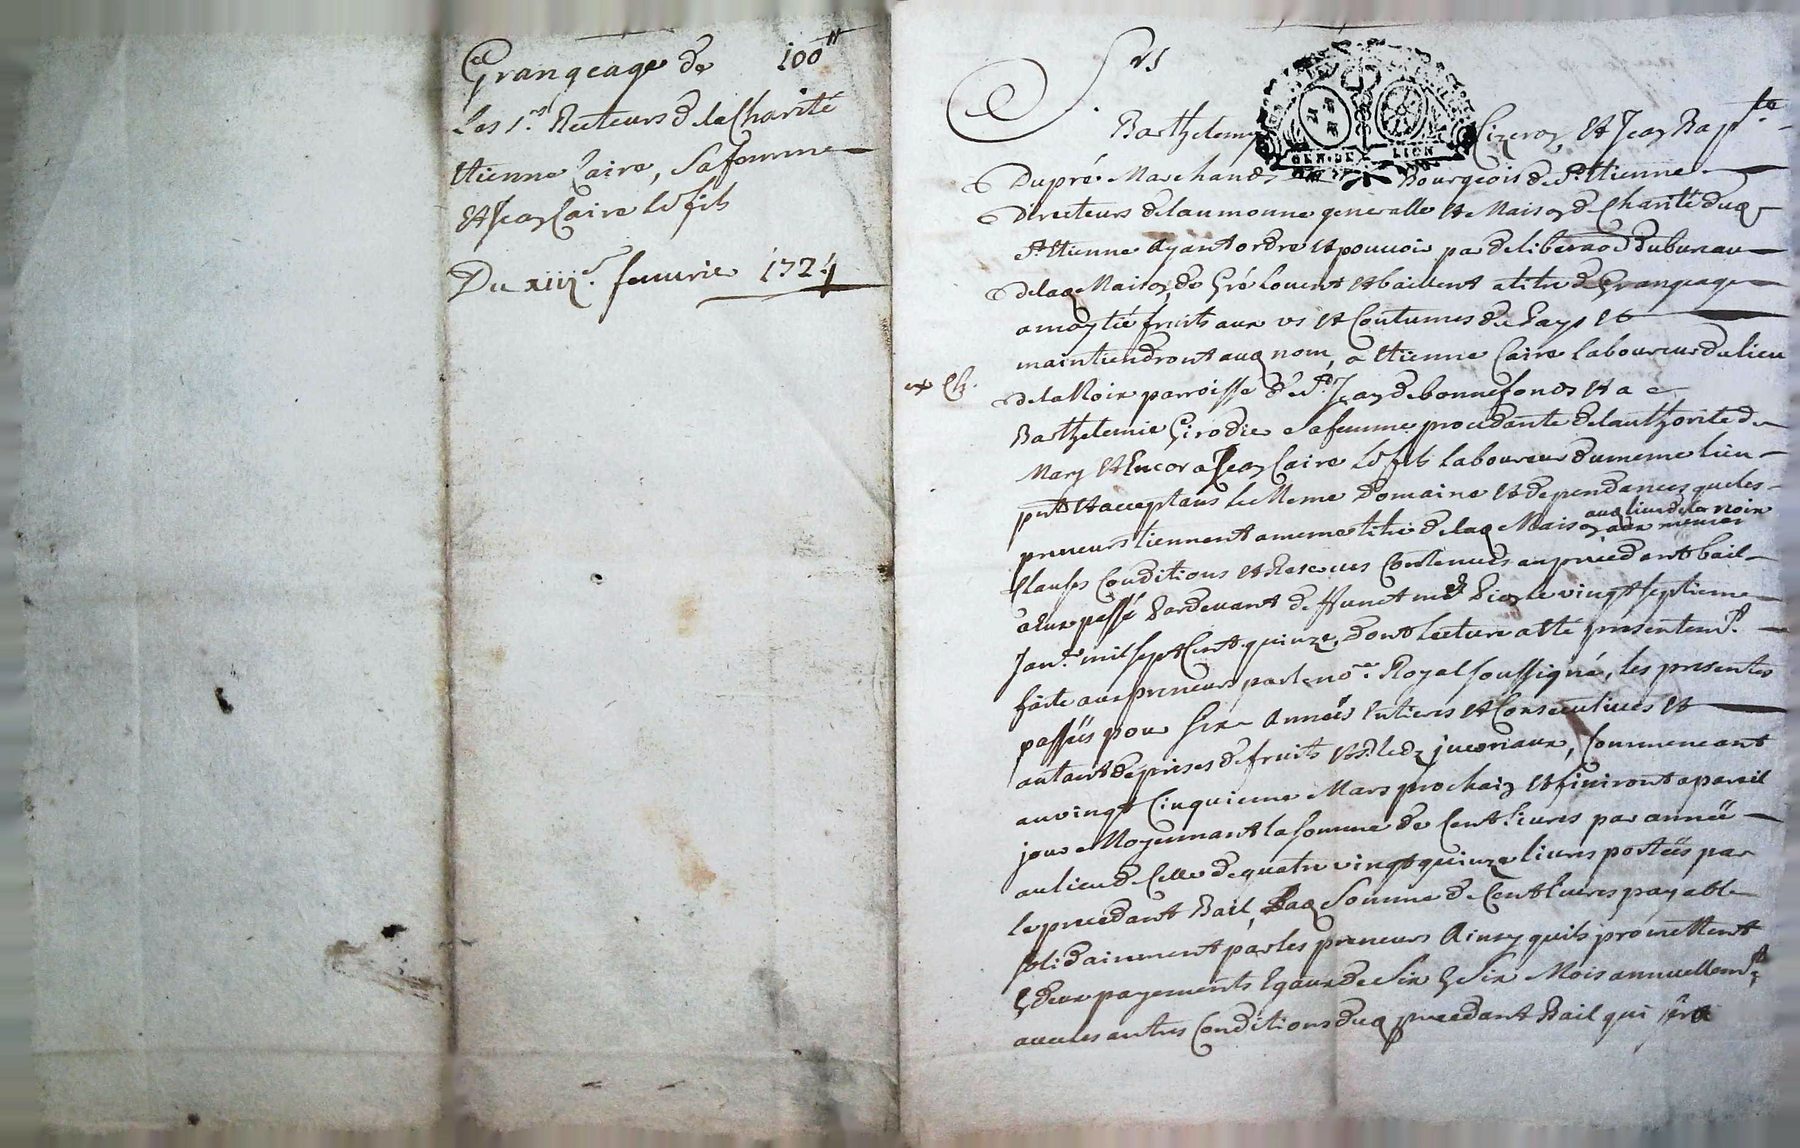 Grangeage de 100ᵗᵗ
Les s.rs Recteurs de la Charité
Etienne Caire, sa femme
Et Jean Caire le fils
Du xiiie. fevvrie 1724
Srs
Barthelemy Cizeron, et Jean Bapte
Dupré Marchands Bourgeois de St. Etienne
GEN. DE LION
directeurs de laumonne generalle et Maison de Charité dud
St. Etienne ayant ordre et pouvoir par deliberaõn du bureau
de lad Maison, de Gré Louent et baillent a titre de Grangeage
a moytié fruits aux us et Coutumes du Pays et
maintiendront aud nom, a Etienne Caire laboureur du lieu
exp Ch.
de la Noix parroisse de St. Jean de bonnefonds et a
Barthelemie Girodie sa femme procedante de lauthorité de
Mary et Encor a Jean Caire le fils laboureur du meme lieu
pnts et acceptans le Meme Domaine et dependances que les
preneurs tiennent a meme titre de lad Maison aud lieu de la noix aux memes
Clauses Conditions et Reserves Contenues au precedant bail
a Eux passé Pardevant deffunct me Picon le vingt septieme
Janer mil sept Cent quinze, dont lecture a été presentemt.
faite aux preneurs par le nore. Royal soussigné, les presentes
passées pour six années Entieres et Consecutives et
autant de prises de fruits et bledz jueriaux, Commencant
au vingt Cinquieme Mars prochain et finiront a pareil
jour Moyennant la somme de Cent livres par année
au lieu de Celle de quatre vingt quinze livres portées par
le precedant Bail, Lad Somme de Cent livres payable
solidairement par les preneurs Ainsy quils promettent
En deux payements Egaux de Six En Six Mois annuellemt
avec les autres Conditions dud precedant Bail qui sera